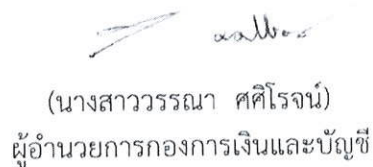 (นางสาววรรณา ศศิโรจน์)
ผู้อำนวยการกองการเงินและบัญชี